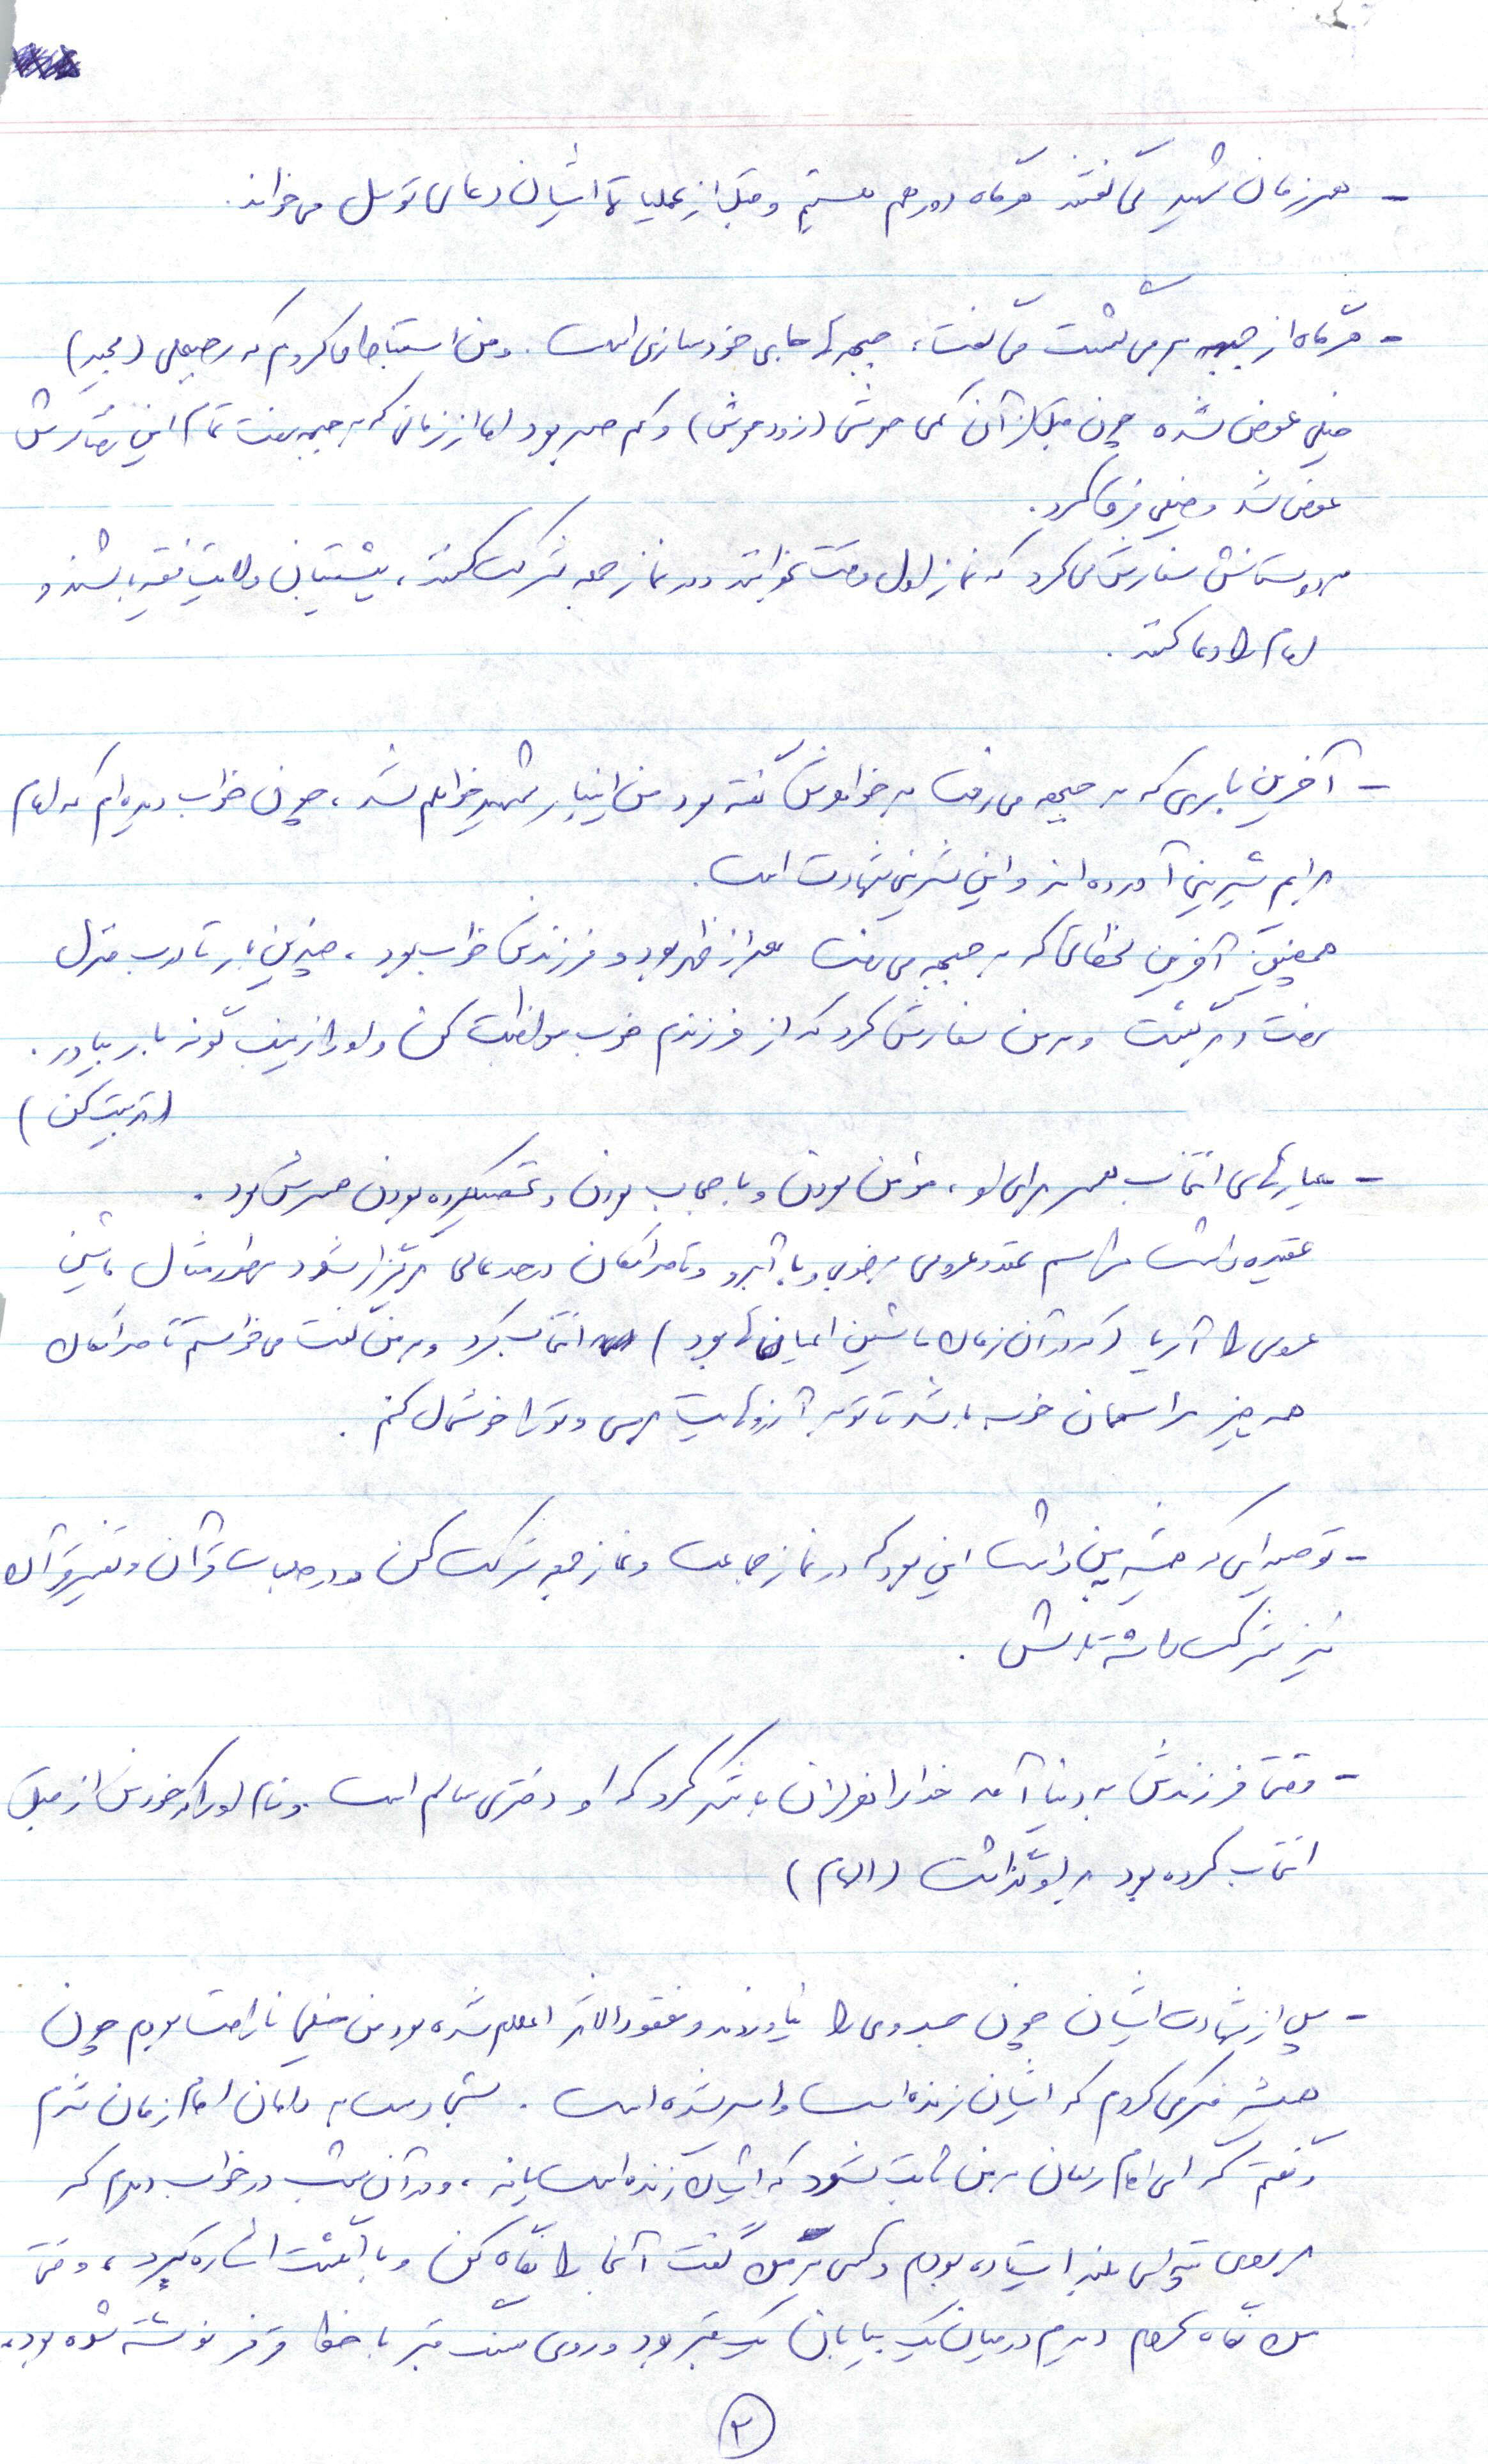 - همرزمان شهید می گفتند هرگاه دور هم هستیم و قبل از عملیاتها ایشان دعای توسل می خواند.
- هرگاه از جبهه برمی گشت می گفت، جبهه ها جای خودسازی است. و من استنباط می کردم که رحیمعلی (مجید)
خیلی عوض شده چون قبل از آن کمی جوشی (زودجوش) و کم صبر بود اما از زمانی که به جبهه رفت تمام این رفتارش
عوض شد و خیلی فرق کرد.
به دوستانش سفارش می کرد که نماز اول وقت بخوانند و در نماز جمعه شرکت کنند، پشتیبان ولایت فقیه باشند و
امام را دعا کنند.
- آخرین باری که به جبهه می رفت به خواهرش گفته بود من اینبار شهید خواهم شد، چون خواب دیده ام که امام
برایم شیرینی آورده اند و این شیرینی شهادت است.
همچنین آخرین لحظاتی که به جبهه می رفت بعد از ظهر بود و فرزندش خواب بود، چندین بار تا درب منزل
رفت و برگشت و به من سفارش کرد که از فرزندم خوب مواظبت کن و او را زینب گونه بار بیاور.
(تربیت کن)
- معیارهای انتخاب همسر برای او، مؤمن بودن و با حجاب بودن و تحصیلکرده بودن همسرش بود.
عقیده داشت مراسم عقد و عروسی به خوبی و با آبرو و تا حد امکان در حد عالی برگزار شود بطور مثال ماشین
عروس را آریا (که در آن زمان ماشین اعیان ها بود) انتخاب کرد و به من گفت می خواستم تا حد امکان
همه چیز مراسممان خوب باشد تا تو به آرزوهایت برسی و تو را خوشحال کنم.
- توصیه ای که همیشه به من داشت این بود که در نماز جماعت و نماز جمعه شرکت کن و در جلسات قرآن و تفسیر قرآن
نیز شرکت داشته باش.
- وقتی فرزندش به دنیا آمد خدا را هزاران بار شکر کرد که او دختری سالم است و نام او را که خودش از قبل
انتخاب کرده بود بر او گذاشت (الهام)
- پس از شهادت ایشان چون جسد وی را نیاوردند و مفقودالاثر اعلام شده بود من خیلی ناراحت بودم چون
همیشه فکر می کردم که ایشان زنده است و اسیر شده است. شبی دست به دامان امام زمان شدم
و گفتم که ای امام زمان به من ثابت شود که ایشان زنده است یا نه، و در آن شب در خواب دیدم که
بر روی تپه ای بلند ایستاده بودم و کسی به من گفت آنجا را نگاه کن و با انگشت اشاره کرد، وقتی
من نگاه کردم دیدم در میان یک بیابان یک قبر بود و روی سنگ قبر با خط قرمز نوشته شده بود،
۲